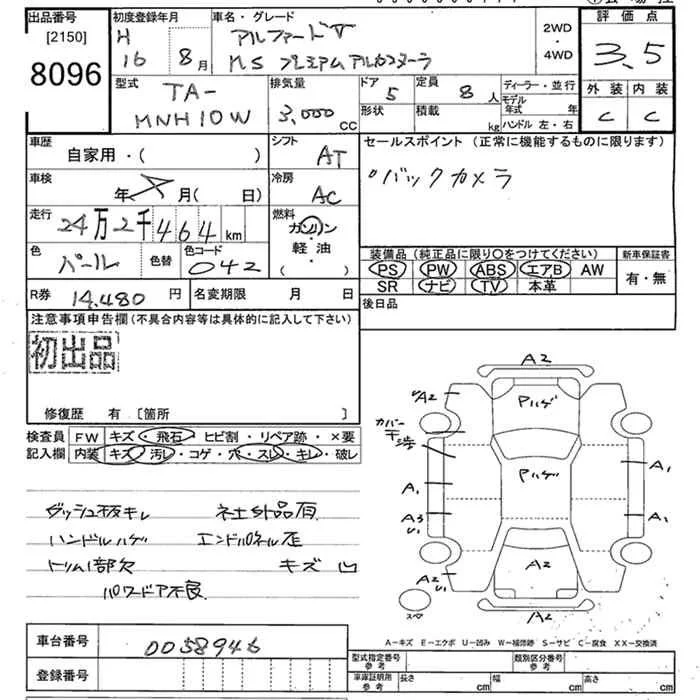 出品番号 初度登録年月 車名・グレード 評価点
[2150] H アルファードV 2WD
8096 16 8月 MS プレミアムアルカンターラ 4WD 3.5
型式 排気量 ドア 定員 ディーラー・並行 外装 内装
TA- 5 8人 モデル年式 年
MNH10W 3,000cc 形状 積載 kg ハンドル 左・右 C C
車歴 シフト セールスポイント (正常に機能するものに限ります)
自家用・( ) AT
車検 冷房 バックカメラ
年 月(日) AC
走行 燃料
24万2千464km ガソリン
色 色替 色コード 軽油 装備品(純正品に限り〇をつけてください) 新車保証書
パール 042 ( ) PS PW ABS エアB AW 有・無
SR ナビ TV 本革
R券 14,480円 名変期限 月 日 後日品
注意事項申告欄(不具合内容等は具体的に記入して下さい)
初出品
修復歴 有 [箇所 ]
検査員 FW キズ・飛石・ヒビ割・リペア跡・×要
記入欄 内装 キズ・汚レ・コゲ・穴・スレ・キレ・破レ
ダッシュ板キレ 社外品有
ハンドルハゲ エンドパネル歪
トリム1部欠 キズ凹
パワードア不良
A2
UA2 Pハゲ
カバー
干渉
Pハゲ A1
A1
A3 U1 A1
A2 U1 A2
スペ A2
A-キズ E-エクボ U-凹み W-補修跡 S-サビ C-腐食 XX-交換済
車台番号 0058946
登録番号
型式指定番号 参考 類別区分番号 参考
車庫証明用 参考 長さ cm 幅 cm 高さ cm